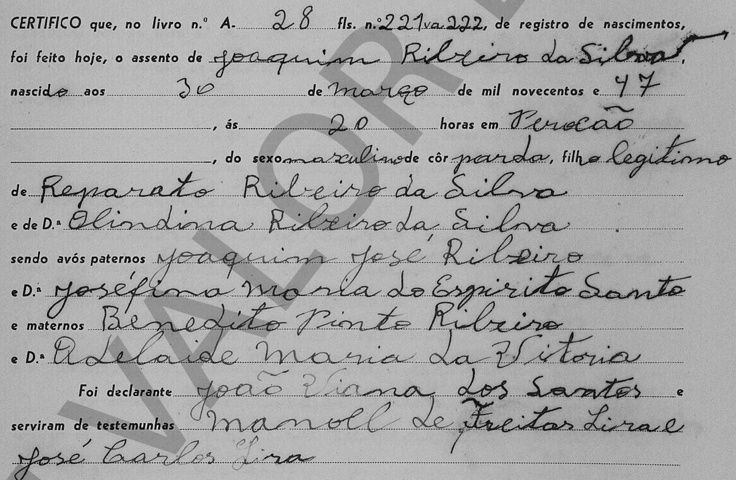 CERTIFICO que, no livro n.º A. 28 fls. n.º 221 va 222, de registro de nascimentos,
foi feito hoje, o assento de Joaquim Ribeiro da Silva,
nascido aos 30 de Março de mil novecentos e 47
, ás 20 horas em Perocão
, do sexo masculino de côr parda, filho legitimo
de Reparato Ribeiro da Silva
e de D.ª Olindina Ribeiro da Silva
sendo avós paternos Joaquim José Ribeiro
e D.ª Joséfina Maria do Espirito Santo
e maternos Benedito Pinto Ribeiro
e D.ª Adelaide Maria da Vitoria
Foi declarante João Viana dos Santos e
serviram de testemunhas Manoel de Freitas Lira e
José Carlos Lira
VALOR